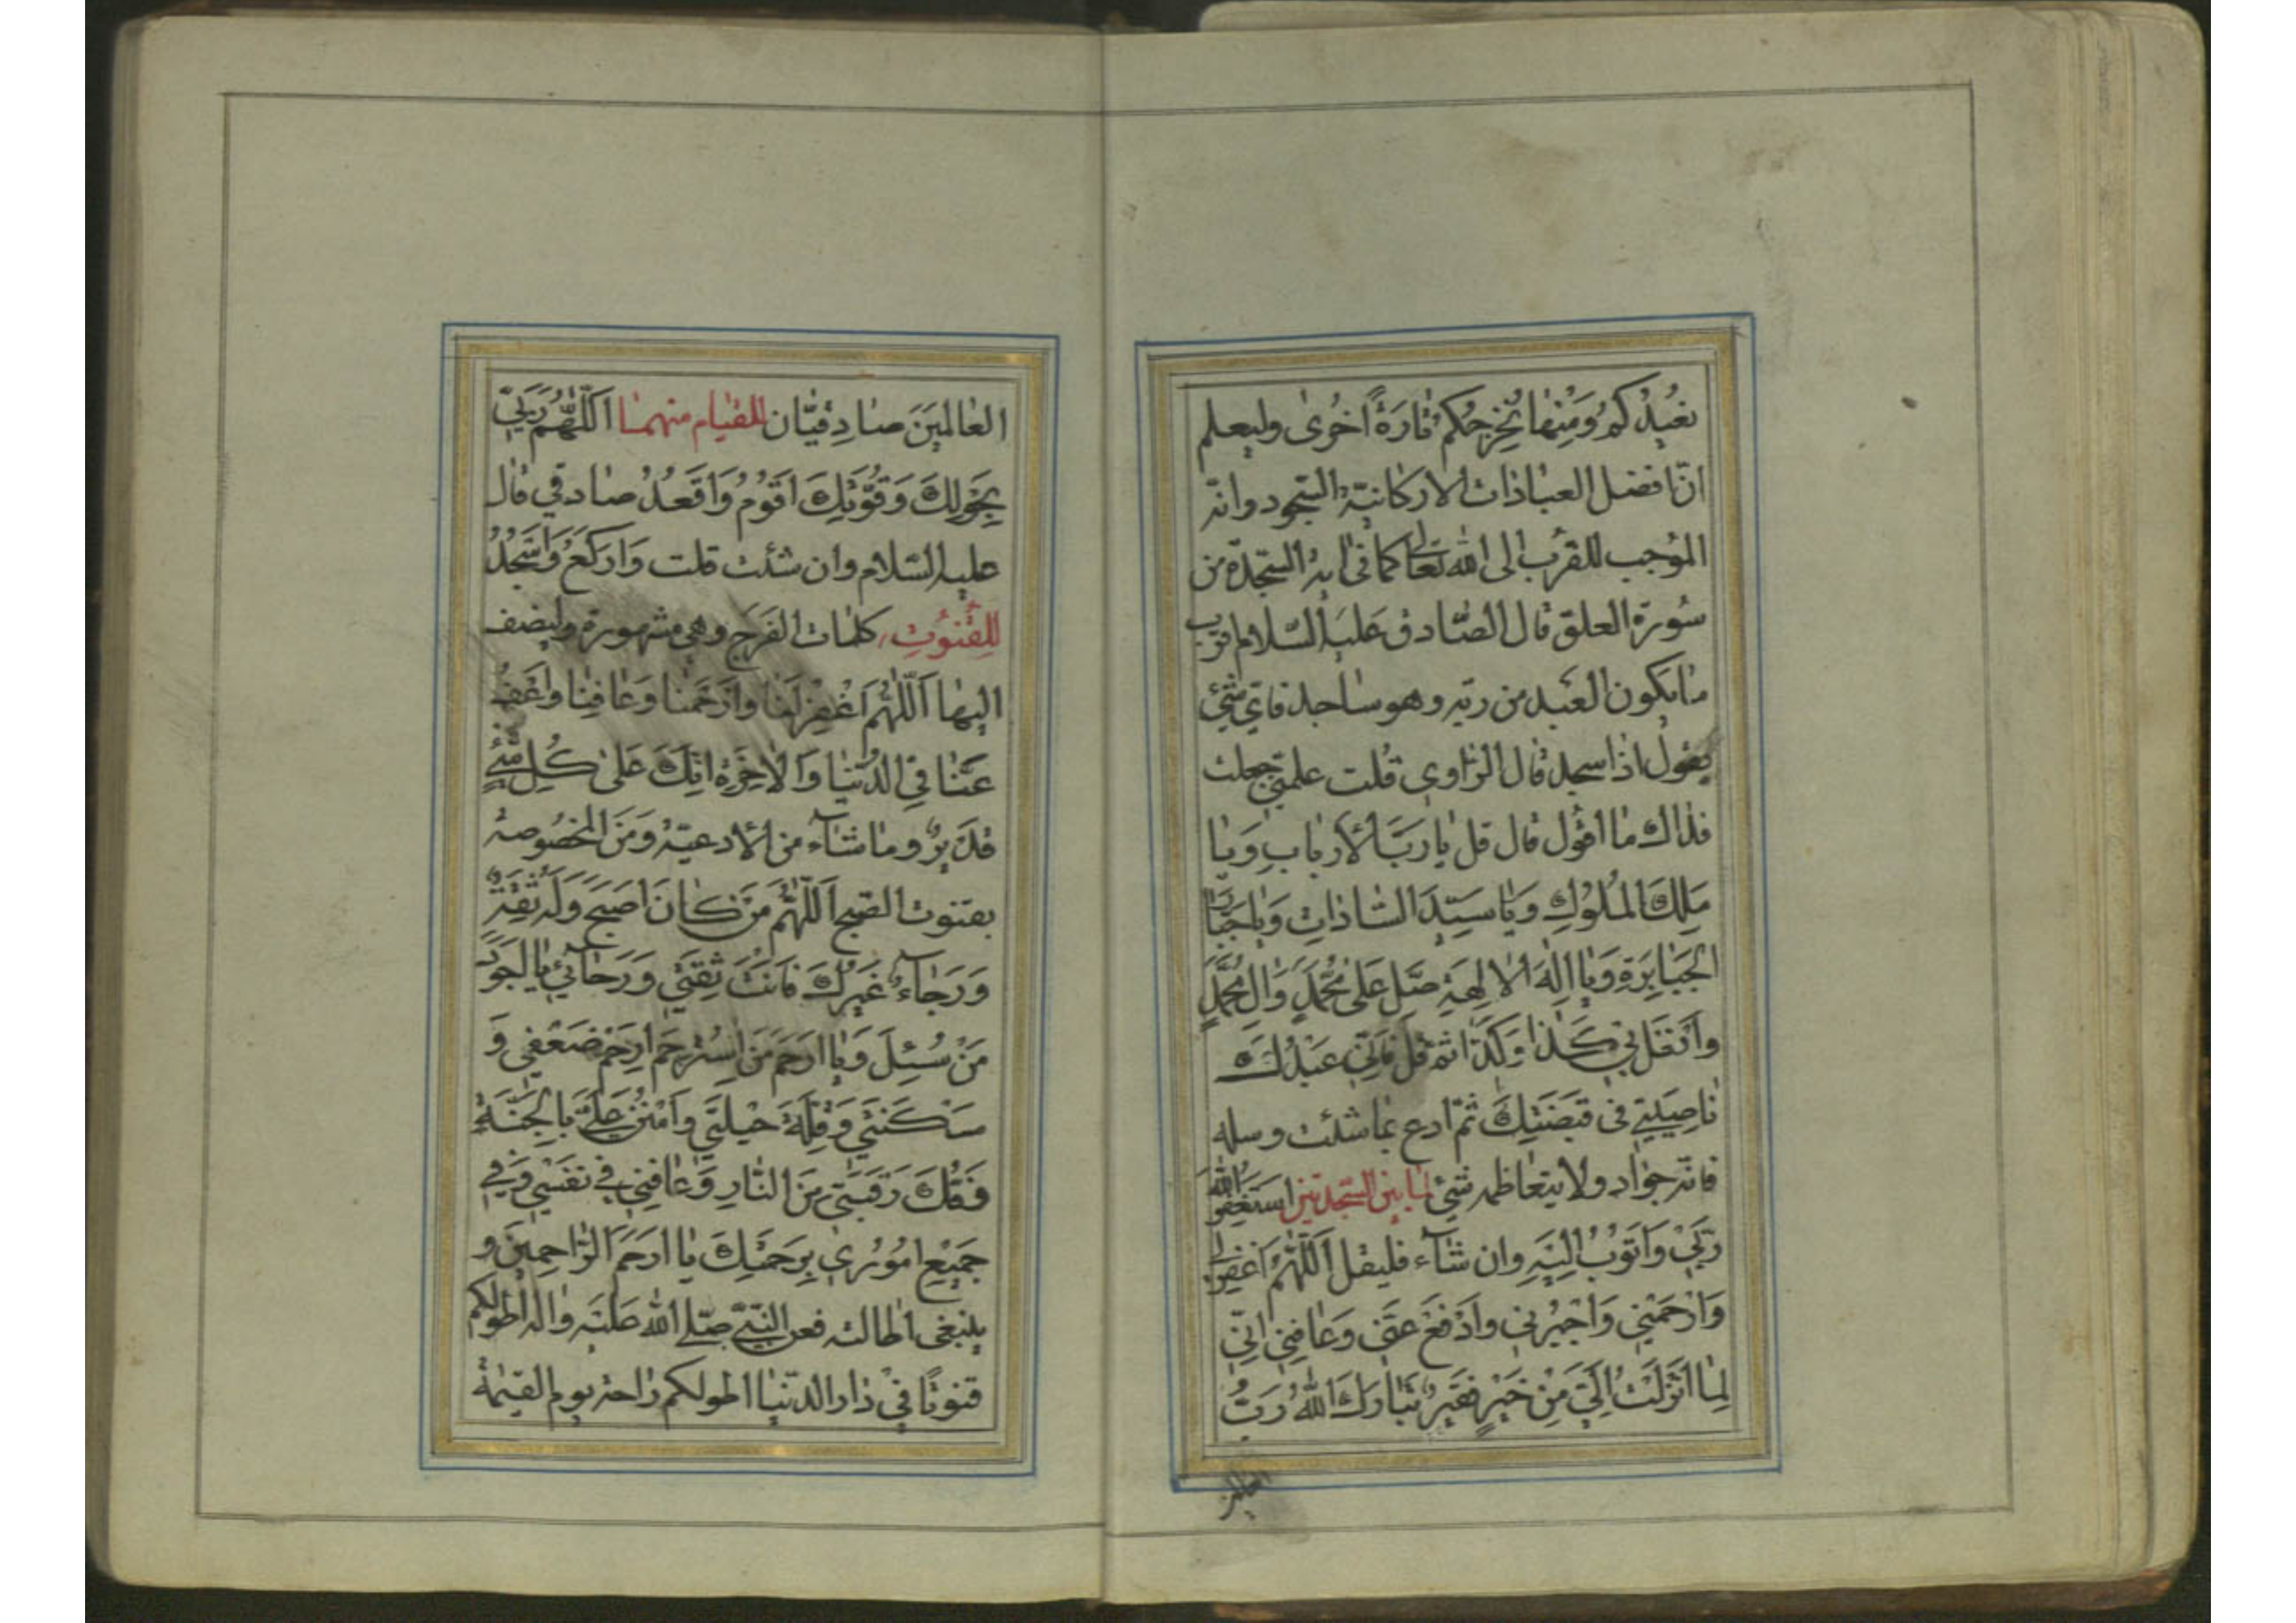 نعيدكم ومنها نخرجكم تارة اخرى وليعلم
انّ افضل العبادات الاركانيّة السّجود وانّه
الموجب للقرب الى الله تعالى كما في اية السّجدة من
سورة العلق قال الصّادق عليه السّلام اقرب
ما يكون العبد من ربّه وهو ساجد فاىّ شئ
يقول اذا سجد قال الرّاوى قلت علمنى جعلت
فداك ما اقول قال قل يا ربّ الارباب ويا
ملك الملوك ويا سيّد السّادات ويا جبّار
الجبابرة ويا اله الالهة صلّ على محمّد وال محمّد
وافعل بى كذا وكذا ثم قل فانّى عبدك
ناصيتى فى قبضتك ثمّ ادع بما شئت وسله
فانّه جواد ولا يتعاظمه شئ لما بين السّجدتين استغفر الله
ربّى واتوب اليه وان شآء فليقل اللّهمّ اغفر لى
وارحمنى واجبرنى وادفع عنّى وعافنى انّى
لما انزلت الىّ من خير فقير تبارك الله ربّ
العالمين
العالمين صادقيّان للقيام منهما اللّهمّ ربّى
بحولك وقوّتك اقوم واقعد صادقى قال
عليه السّلام وان شئت قلت واركع واسجد
للقنوت كلمات الفرج وهى مشهورة وليضف
اليها اللّهمّ اغفر لنا وارحمنا وعافنا واعف
عنّا فى الدّنيا والاخرة انّك على كلّ شئ
قدير وما شآء من الادعية ومن المخصوصة
بقنوت الصّبح اللّهمّ من كان اصبح وله ثقة
ورجاء غيرك فانت ثقتى ورجائى يا اجود
من سئل ويا ارحم من استرحم ارحم ضعفى و
مسكنتى وقلّة حيلتى وامنن علىّ بالجنّة
وفكّ رقبتى من النّار وعافنى فى نفسى وفى
جميع امورى برحمتك يا ارحم الرّاحمين و
ينبغى اطالته فعن النّبىّ صلّى الله عليه واله اطولكم
قنوتًا فى دار الدّنيا اطولكم راحة يوم القيمة